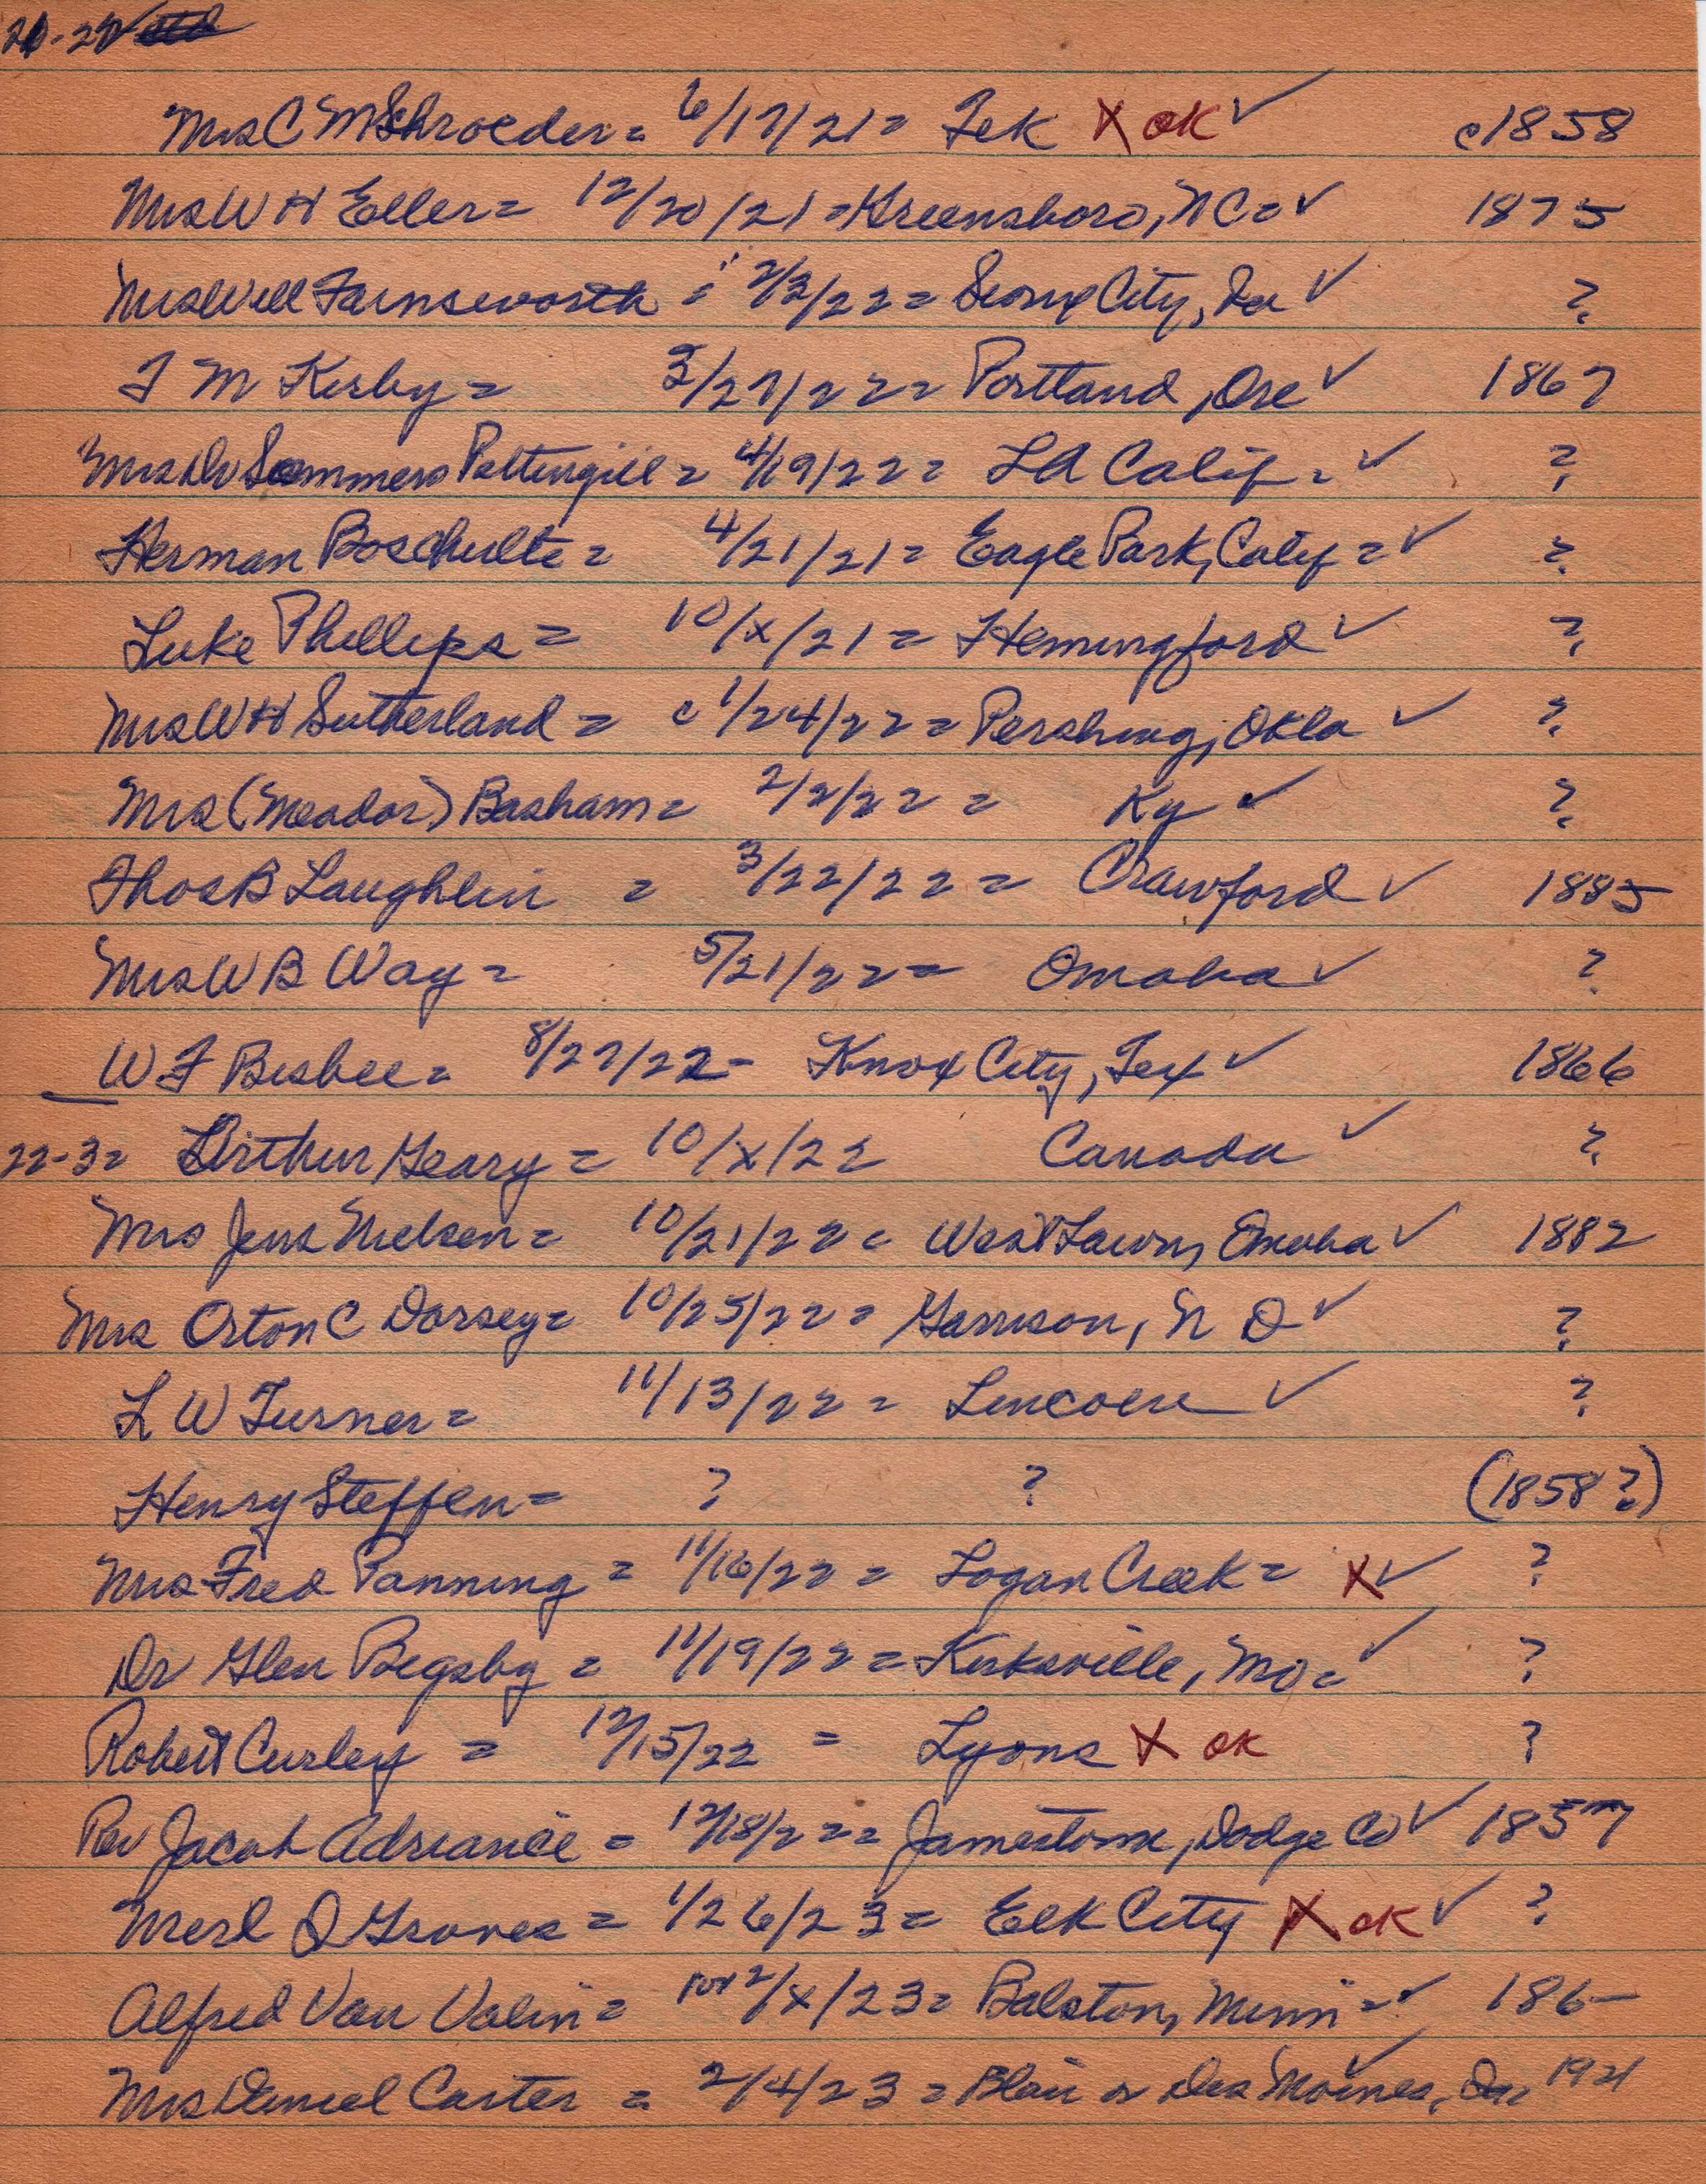 21-22
Mrs C M Schroeder = 6/17/21 = Tek X OK ✓ c1858
Mrs W H Eller = 12/20/21 = Greensboro, NC = ✓ 1875
Mrs Will Farnsworth = 2/2/22 = Sioux City, Ia ✓ ?
T M Kirby = 3/27/22 = Portland, Ore ✓ 1867
Mrs Dr Sommers Pettingill = 4/19/22 = LA Calif = ✓ ?
Herman Boschulte = 4/21/21 = Eagle Park, Calif = ✓ ?
Luke Phillips = 10/x/21 = Hemingford ✓ ?
Mrs W H Sutherland = c 1/24/22 = Pershing, Okla ✓ ?
Mrs (Meador) Basham = 2/2/22 = Ky ✓ ?
Thos B Laughlin = 3/22/22 = Crawford ✓ 1885
Mrs W B Way = 5/21/22 = Omaha ✓ ?
W F Bisbee = 8/27/22 - Knox City, Tex ✓ 1866
22-3 = Arthur Geary = 10/x/22 Canada ✓ ?
Mrs Jens Nielsen = 10/21/22 = West Lawn, Omaha ✓ 1882
Mrs Orton C Dorsey = 10/25/22 = Garrison, N D ✓ ?
L W Turner = 11/13/22 = Lincoln ✓ ?
Henry Steffen = ? ? (1858?)
Mrs Fred Panning = 11/16/22 = Logan Creek = X ✓ ?
Dr Glen Bigsby = 11/19/22 = Kirksville, Mo = ✓ ?
Robert Curley = 12/15/22 = Lyons X OK ?
Rev Jacob Adriance = 12/18/22 = Jamestown, Dodge Co ✓ 1857
Merl D Groves = 1/26/23 = Elk City X OK ✓ ?
Alfred Van Valin = 1 or 2/x/23 = Balaton, Minn = ✓ 186-
Mrs Daniel Carter = 2/4/23 = Blair or Des Moines, Ia ✓ 1921